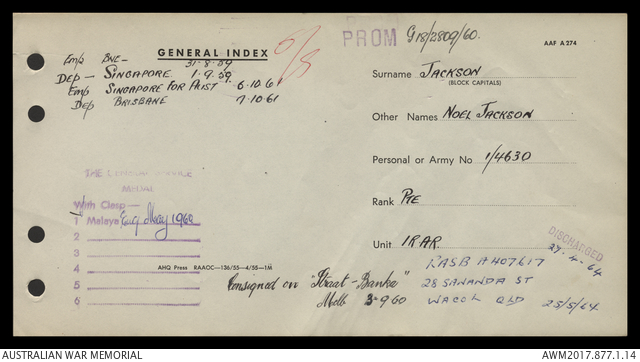 GENERAL INDEX
PROM
G18/2809/60.
AAF A 274
Emp BNE - 31.8.59
Dep - SINGAPORE 1.9.59
Emp SINGAPORE FOR AUST 6.10.61
Dep BRISBANE 7.10.61
Surname JACKSON
(BLOCK CAPITALS)
Other Names NOEL JACKSON
Personal or Army No 1/4630
Rank PTE
Unit 1RAR.
DISCHARGED
27.4.64
THE GENERAL SERVICE
MEDAL
With Clasp—
1 Malaya Eng May 1960
2
3
4
5
6
AHQ Press RAACC—136/55—4/55—1M
Consigned on "Straat-Banka"
Melb 3-9-60
RASB A407617
28 SANANDA ST
WACOL QLD 25/5/64
AUSTRALIAN WAR MEMORIAL
AWM2017.877.1.14